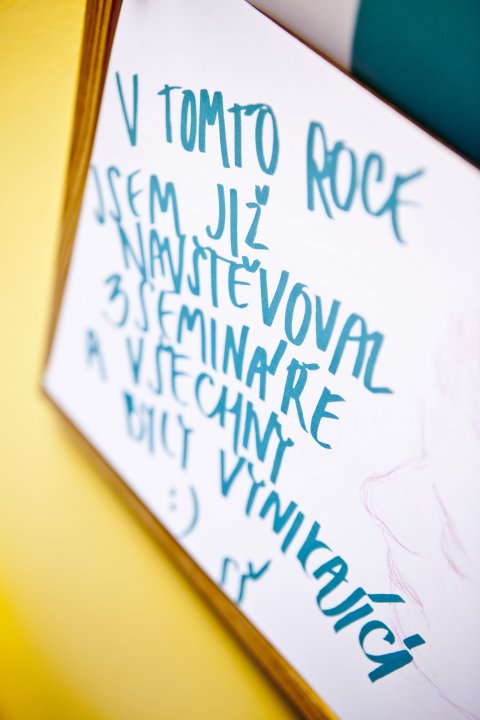 V TOMTO ROCE
JSEM JIŽ
NAVŠTĚVOVAL
3 SEMINÁŘE
A VŠECHNY
BYLY VYNIKAJÍCÍ
:)